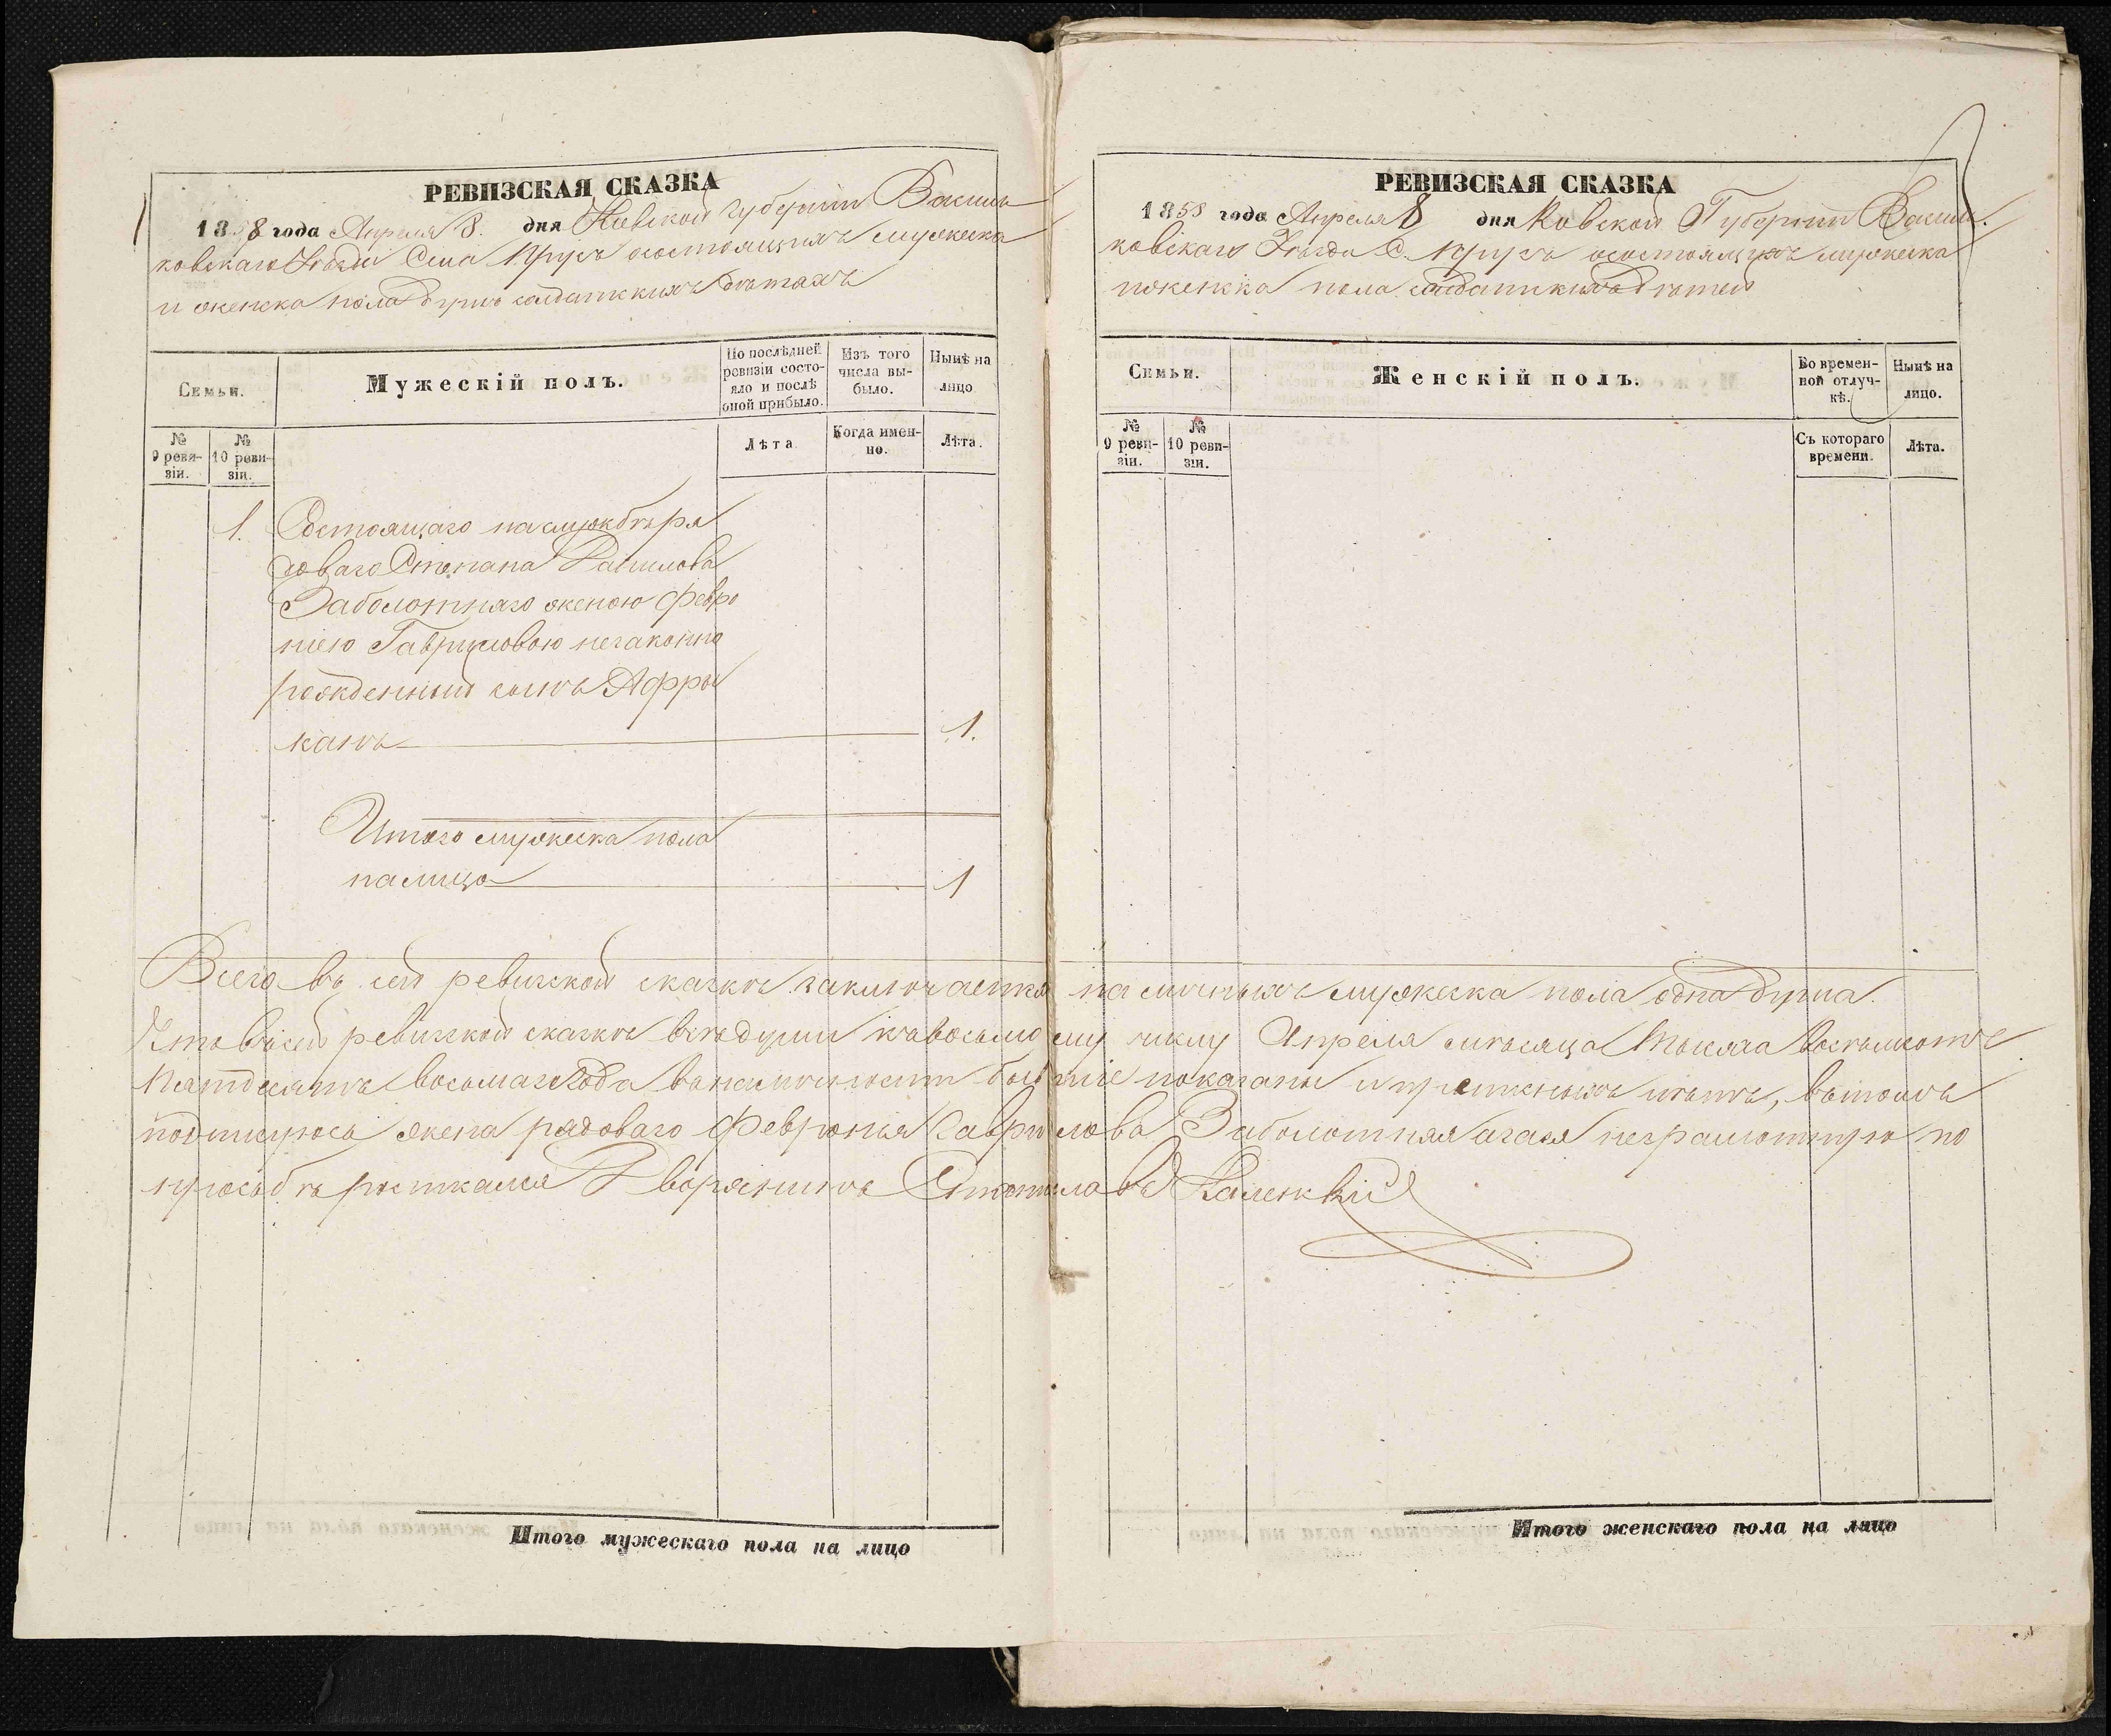 РЕВИЗСКАЯ СКАЗКА
1858 года Апреля 8. дня Кіевской губерніи Василь
ковскаго Уѣзда Села Пруси о состоящихъ мужеска
и женска пола душъ солдатскихъ дѣтяхъ
Семьи.
Мужескій полъ.
По послѣдней ревизіи состо-
яло и послѣ
оной прибыло.
Изъ того
числа вы-
было.
Нынѣ на
лицо
№
9 реви-
зіи.
№
10 реви-
зіи.
Лѣта
Когда имен-
но.
Лѣта.
1. Состоящаго на службѣ ря
доваго Степана Данилова
Заболотняго женою Февро
ніею Гавриловою незаконно
рожденный сынъ Афры
канъ 1.
Итого мужеска пола
на лицо 1
РЕВИЗСКАЯ СКАЗКА
1858 года Апреля 8 дня Кіевской Губерніи Василь
ковскаго Уѣзда С. Прусъ о состоящихъ мужеска
и женска пола солдатскихъ дѣтей
Семьи.
Женскій полъ.
Во времен-
ной отлуч-
кѣ.
Нынѣ на
лицо.
№
9 реви-
зіи.
№
10 реви-
зіи.
Съ котораго
времени.
Лѣта.
Всего въ сей ревизской сказкѣ заключается на личныхъ мужеска пола одна душа.
Что въ сей ревизской сказкѣ всѣ души къ восьмому числу Апреля мѣсяца тысяча восемьсотъ
пятдесятъ восьмаго года въ наличности бывшіе показаны и пропускныхъ нѣтъ, въ томъ
подписуюсь жена рядоваго Февронія Гаврилова Заболотняя а за ея неграмотную по
прозьбѣ росписался Дворянинъ Станиславъ
Итого мужескаго пола на лицо
Итого женскаго пола на лицо